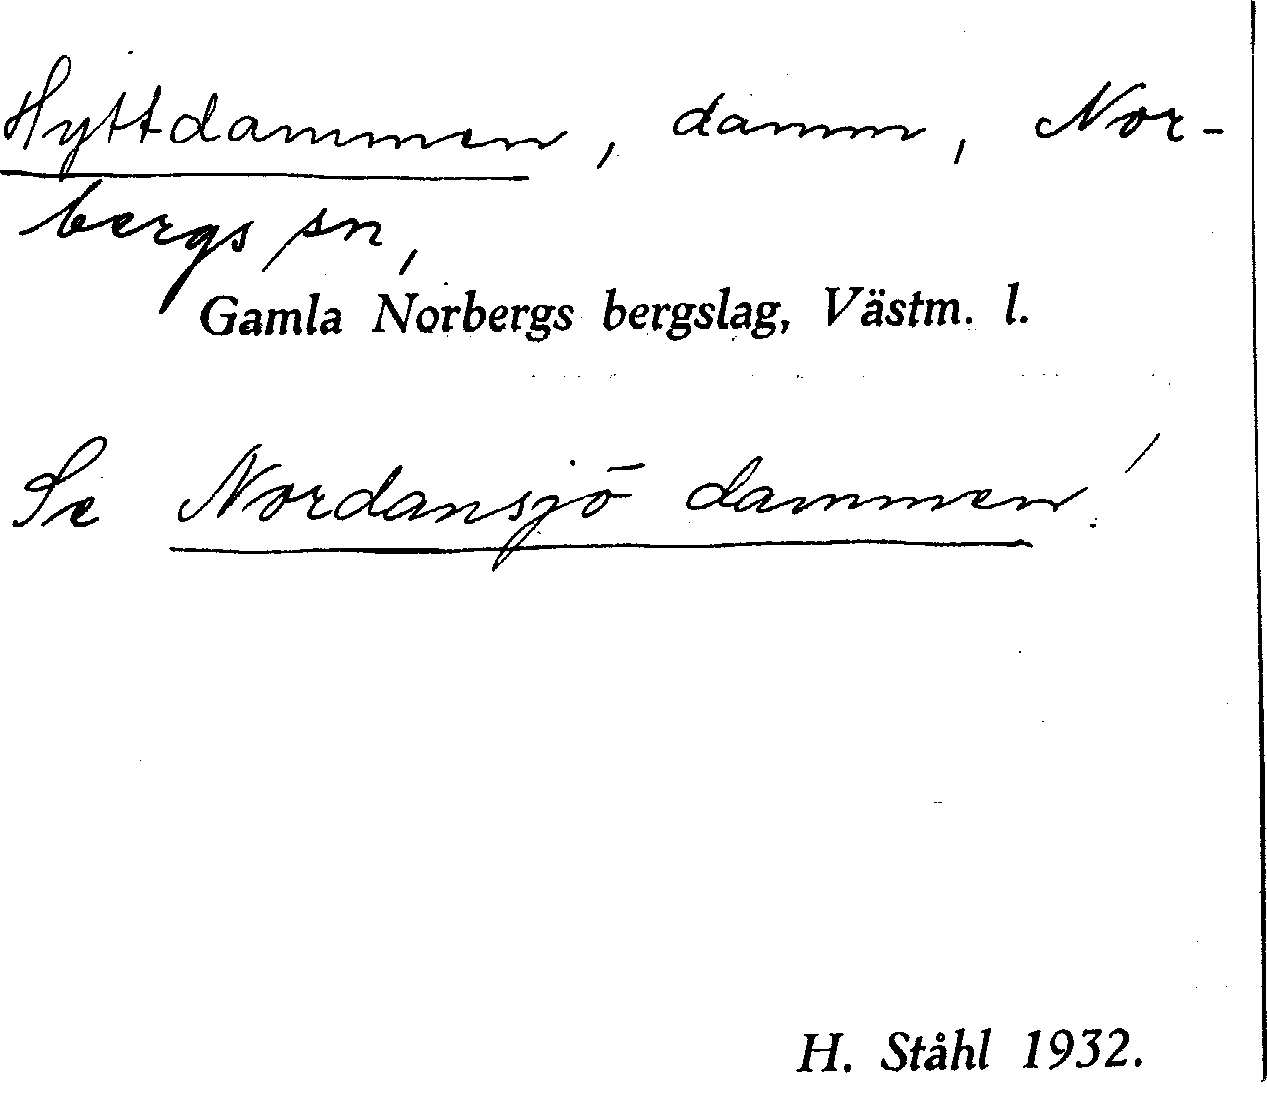 Hyttdammen, damm, Nor-
bergs sn,
Gamla Norbergs bergslag, Västm. l.
Se Nordansjö dammen!
H. Ståhl 1932.